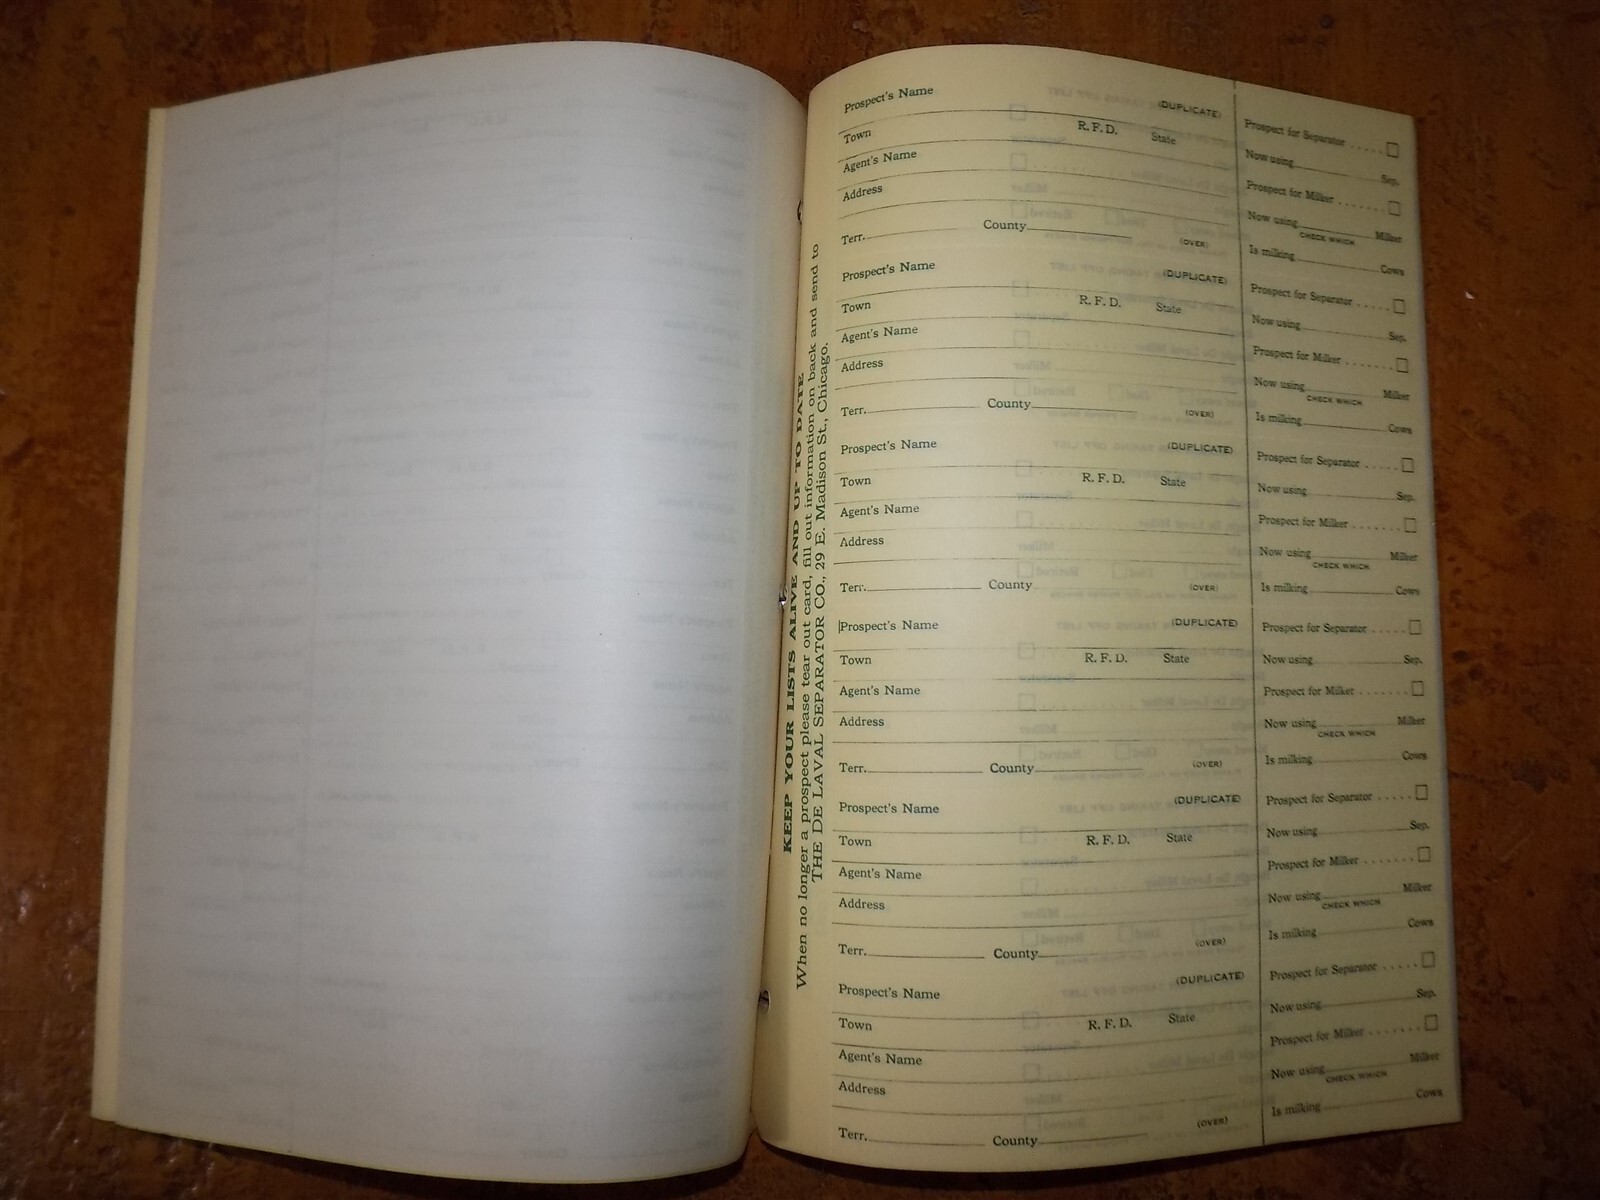 KEEP YOUR LISTS ALIVE AND UP TO DATE
When no longer a prospect please tear out card, fill out information on back and send to
THE DE LAVAL SEPARATOR CO., 29 E. Madison St., Chicago.
Prospect's Name (DUPLICATE)
Town R.F.D. State
Agent's Name
Address
Terr. County (OVER)
Prospect for Separator ..... □
Now using Sep.
Prospect for Milker ....... □
Now using Milker
CHECK WHICH
Is milking Cows
Prospect's Name (DUPLICATE)
Town R.F.D. State
Agent's Name
Address
Terr. County (OVER)
Prospect for Separator ..... □
Now using Sep.
Prospect for Milker ....... □
Now using Milker
CHECK WHICH
Is milking Cows
Prospect's Name (DUPLICATE)
Town R.F.D. State
Agent's Name
Address
Terr. County (OVER)
Prospect for Separator ..... □
Now using Sep.
Prospect for Milker ....... □
Now using Milker
CHECK WHICH
Is milking Cows
Prospect's Name (DUPLICATE)
Town R.F.D. State
Agent's Name
Address
Terr. County (OVER)
Prospect for Separator ..... □
Now using Sep.
Prospect for Milker ....... □
Now using Milker
CHECK WHICH
Is milking Cows
Prospect's Name (DUPLICATE)
Town R.F.D. State
Agent's Name
Address
Terr. County (OVER)
Prospect for Separator ..... □
Now using Sep.
Prospect for Milker ....... □
Now using Milker
CHECK WHICH
Is milking Cows
Prospect's Name (DUPLICATE)
Town R.F.D. State
Agent's Name
Address
Terr. County (OVER)
Prospect for Separator ..... □
Now using Sep.
Prospect for Milker ....... □
Now using Milker
CHECK WHICH
Is milking Cows